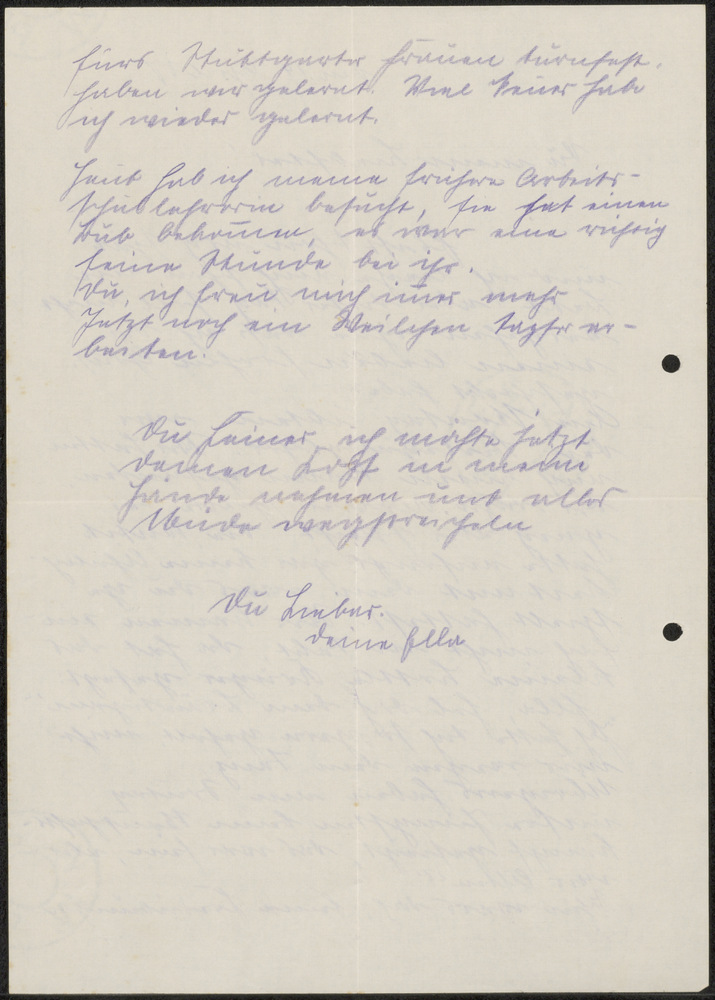 fürs Stuttgarter Frauen turnfest.
haben wir gelernt. Viel Neues habe
ich wieder gelernt.
Heut hab ich meine frühere Arbeits-
schullehrerin besucht, sie hat einen
Bub bekommen, es war eine richtig
feine Stunde bei ihr.
Du, ich freu mich immer mehr
Jetzt noch ein Weilchen tapfer ar-
beiten.
Du Feiner, ich möchte jetzt
deinen Kopf in meine
Hände nehmen und alles
Müde wegstreicheln
Du Lieber.
Deine Ella